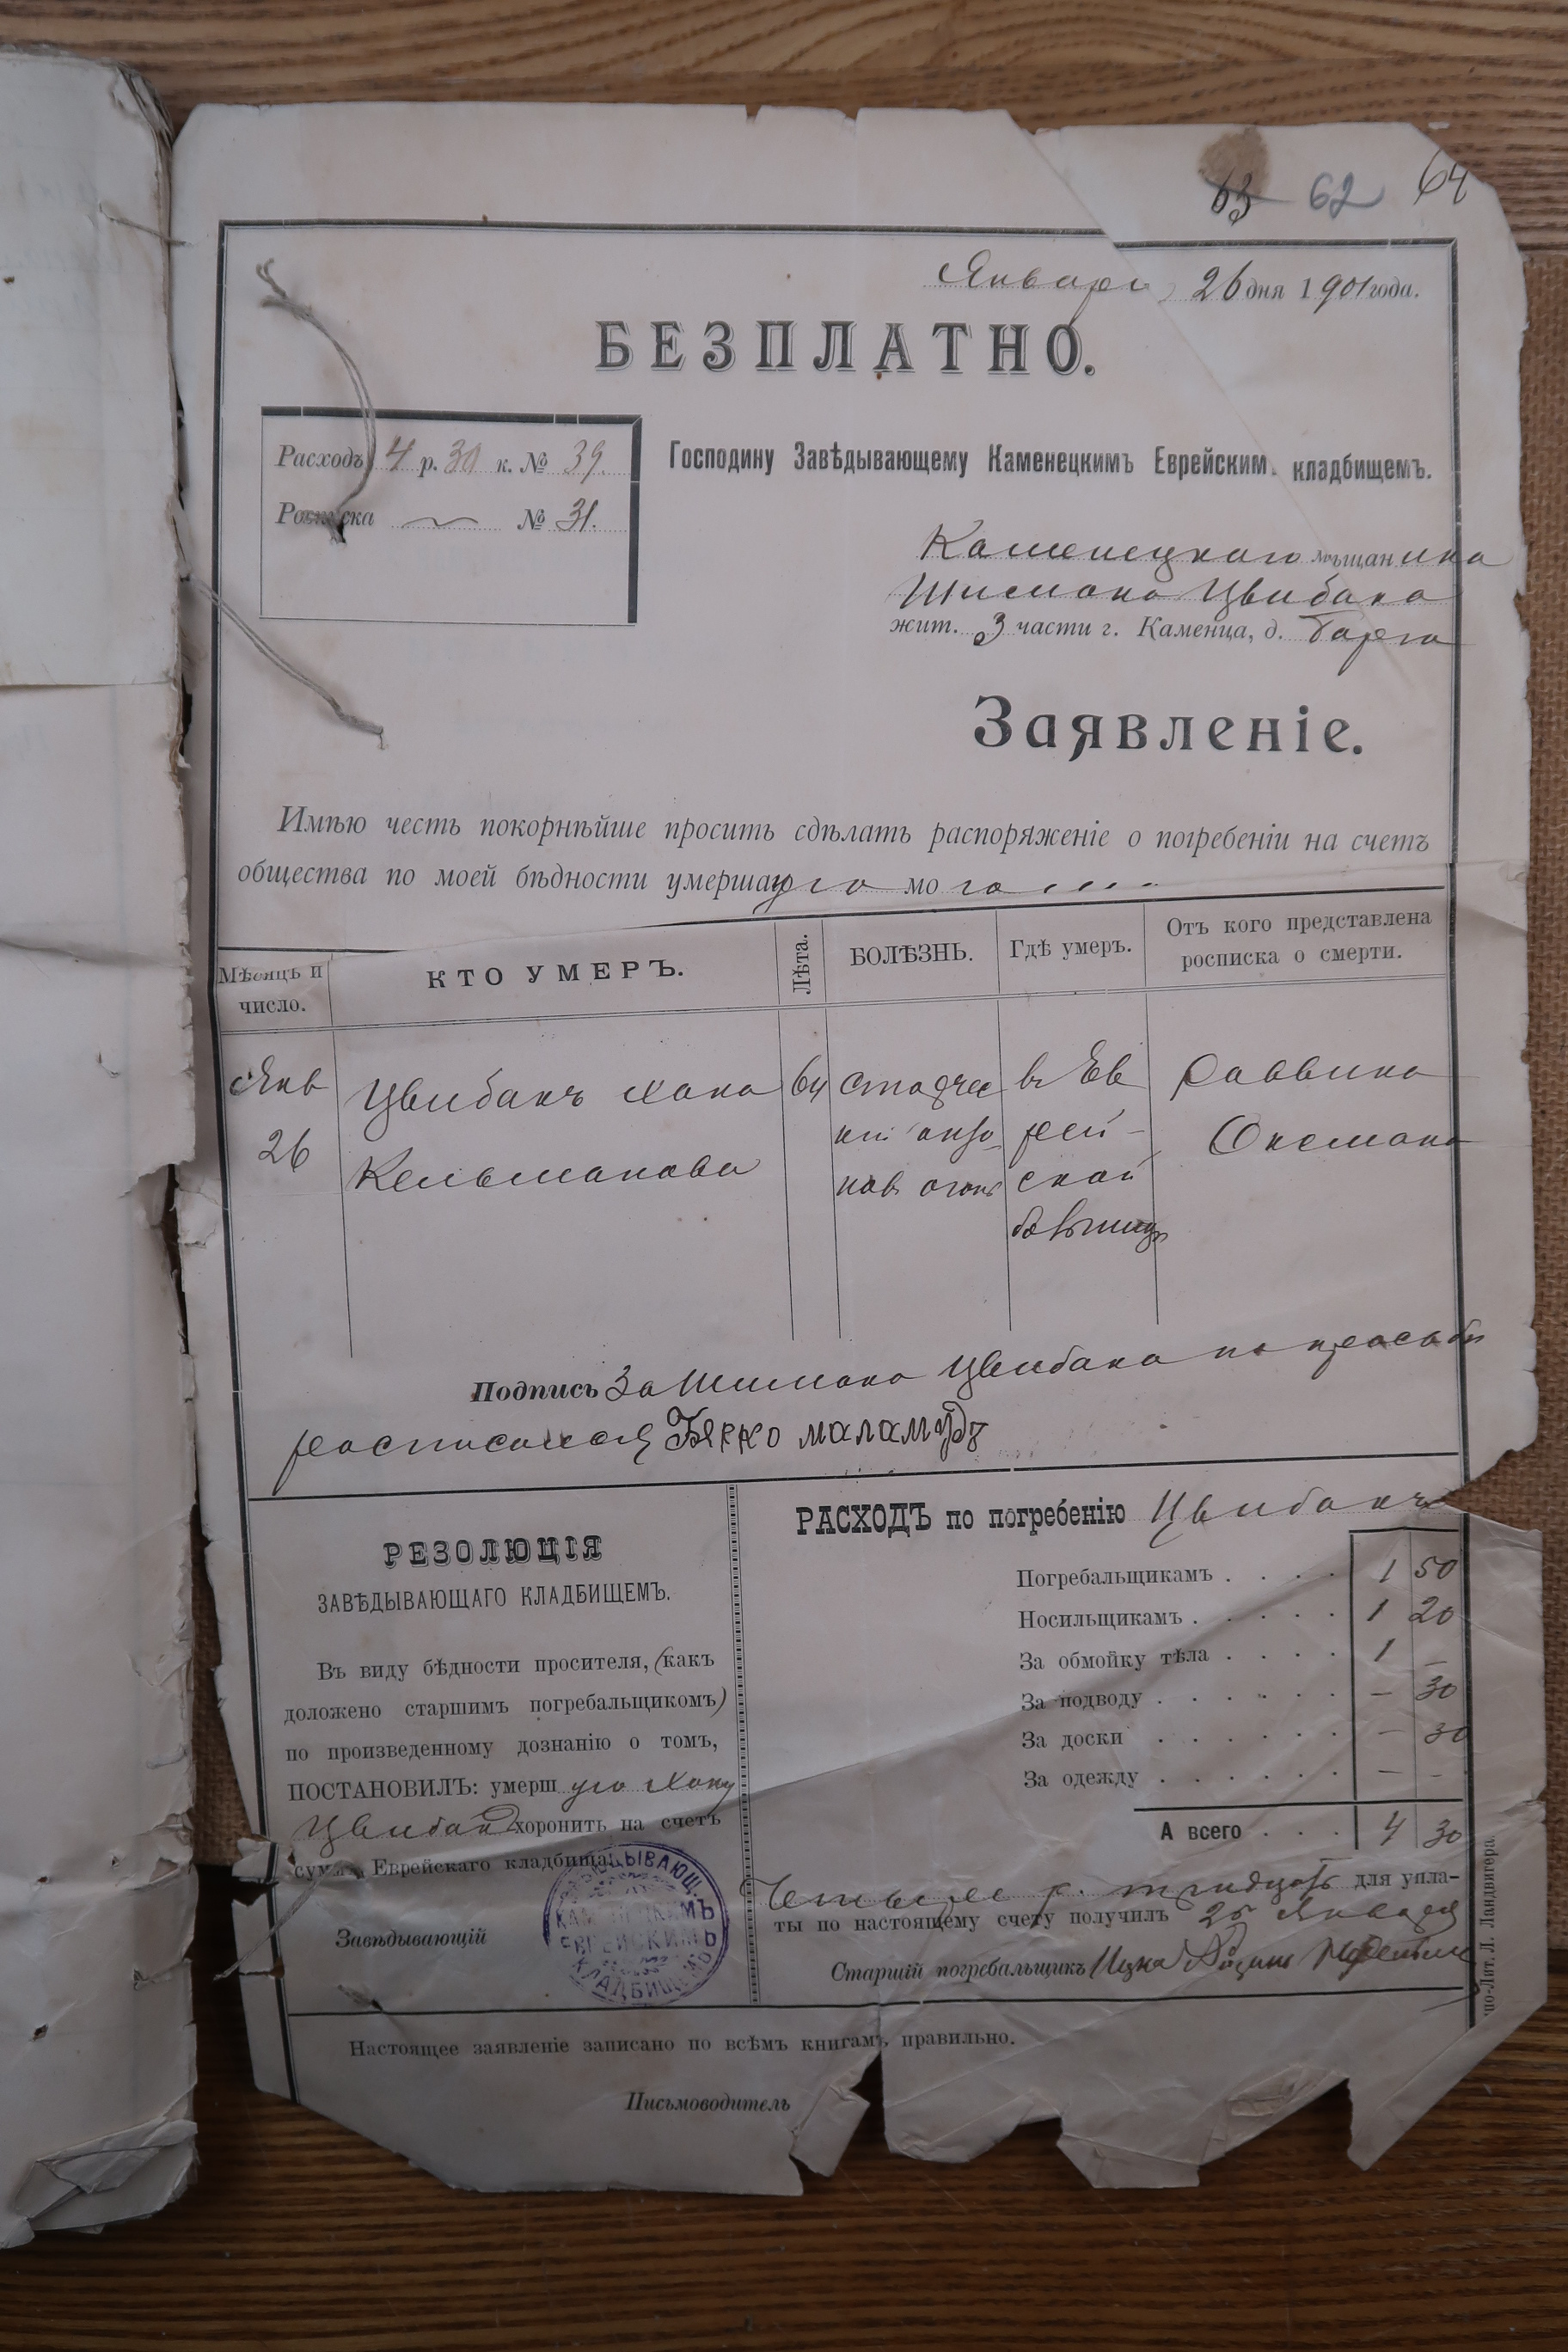 63 62 64
Января 26 дня 1901 года.
БЕЗПЛАТНО.
Расходъ 4 р. 30 к. № 39.
Росписка № 31.
Господину Завѣдывающему Каменецкимъ Еврейским кладбищемъ.
Каменецкаго мѣщанина
Шимона Цвибака
жит. 3 части г. Каменца, д.
Заявленіе.
Имѣю честь покорнѣйше просить сдѣлать распоряженіе о погребеніи на счетъ
общества по моей бѣдности умершаго мо го
Мѣсяцъ и число.
КТО УМЕРЪ.
Лѣта.
БОЛѢЗНЬ.
Гдѣ умеръ.
Отъ кого представлена росписка о смерти.
Янв
26
Цвибакъ Хана
Кельманова
64
в Ев
рей-
ской
Раввина
Оксмана
Подпись За Шимона Цвибака по просьбѣ
росписался маламудъ
РЕЗОЛЮЦІЯ
ЗАВѢДЫВАЮЩАГО КЛАДБИЩЕМЪ.
Въ виду бѣдности просителя, (какъ
доложено старшимъ погребальщикомъ)
по произведенному дознанію о томъ,
ПОСТАНОВИЛЪ: умерш уго Хану
Цвибак хоронить на счетъ
сумъ Еврейскаго кладбища.
Завѣдывающій
ЗАВѢДЫВАЮЩ. КАМЕНЕЦКИМЪ ЕВРЕЙСКИМЪ КЛАДБИЩЕМЪ
РАСХОДЪ по погребенію Цвибакъ
Погребальщикамъ . . . . 1 50
Носильщикамъ . . . . . 1 20
За обмойку тѣла . . . . 1 —
За подводу . . . . . . — 30
За доски . . . . . . — 30
За одежду . . . . . . — —
А всего . . . 4 30
Четыре р. тридцать для упла-
ты по настоящему счету получилъ 26 Января
Старшій погребальщикъ Ицко
Настоящее заявленіе записано по всѣмъ книгамъ правильно.
Письмоводитель
по-Лит. Л. Ландвигера.